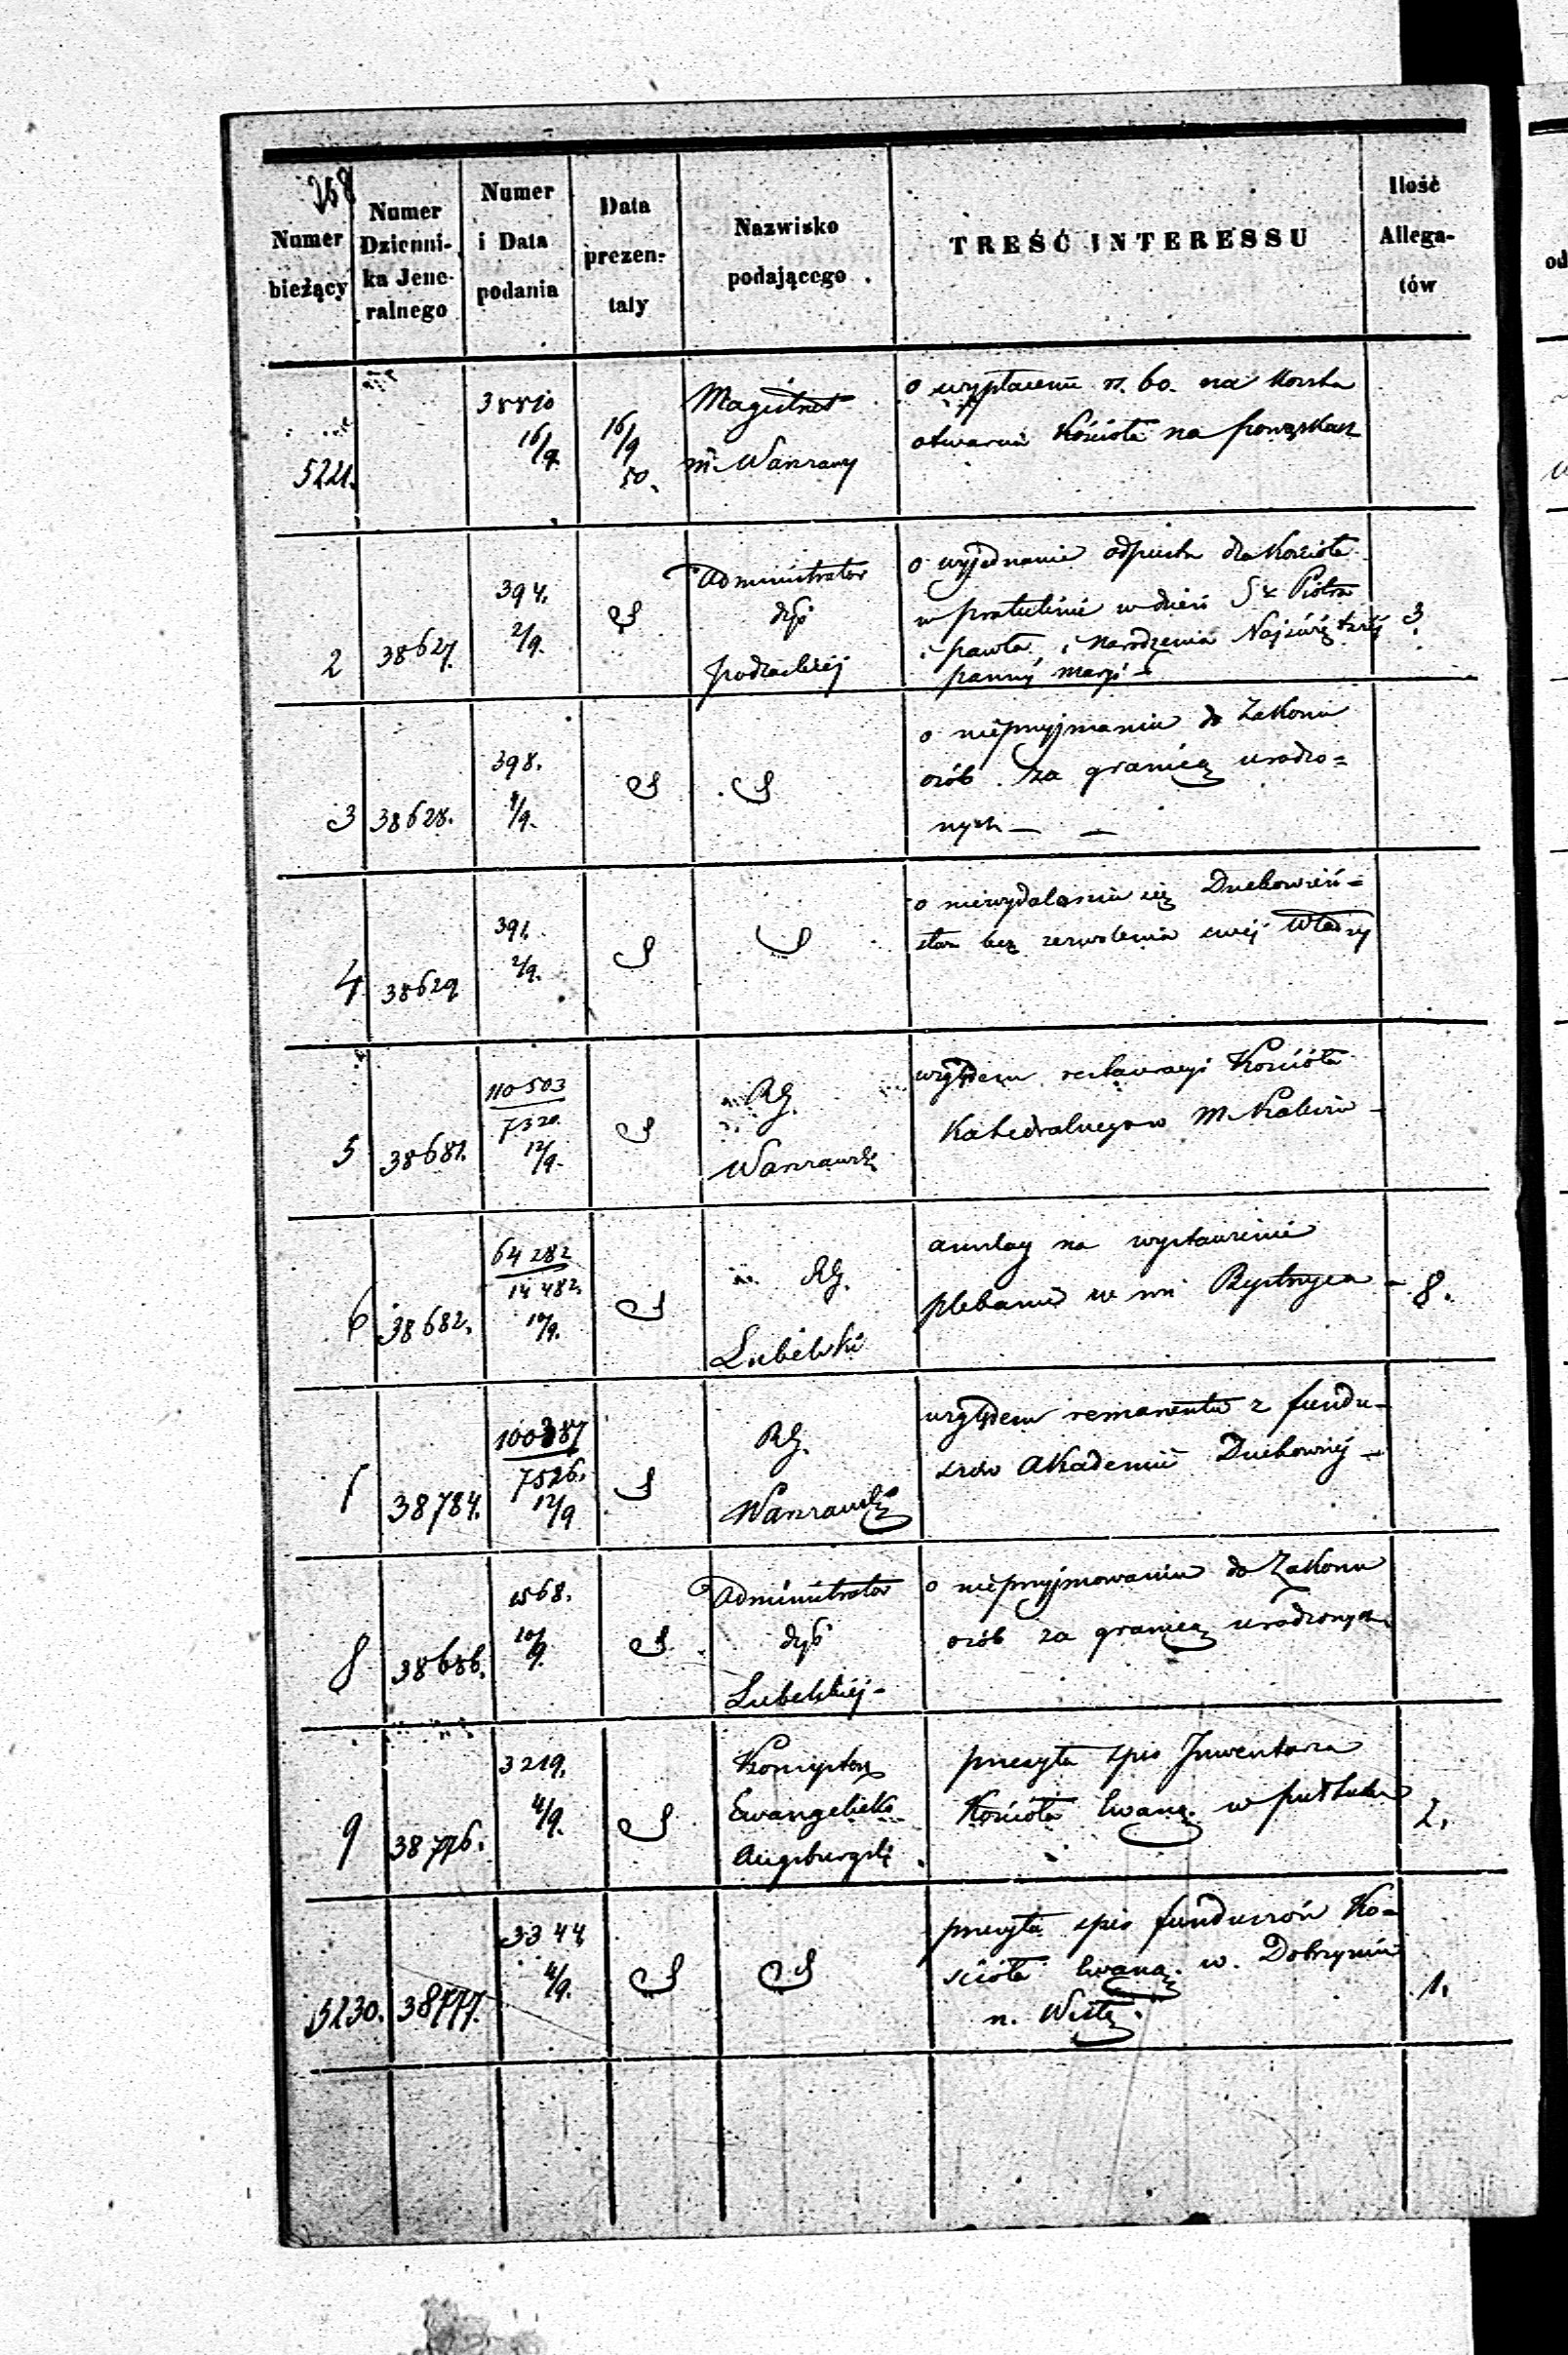 268
Numer bieżący
Numer Dzienni- ka Jene- ralnego
Numer i Data podania
Data prezen- taty
Nazwisko podającego
TREŚĆ INTERESSU
Ilość Allega- tów
5221.
16/9
16/9
50.
Magistrat
m. Warszawy
o wypłacenie rs. 60. na koszta
otwarcia Kościoła na powązkach
2
38627.
394.
2/9.
Administrator
dyć
podlaskiej
o wyjednanie odpustu dla Kościoła
w pratulinie w dzień Piotra
i pawła i Narodzenia Najświętszéj
panny maryi
3.
3
38628.
398.
9.
o nieprzyjmaniu do Zakonu
osób za granicą urodzo=
nych —
4
38629
391.
2/9.
o niewydalaniu się Duchowień=
stwa bez zezwolenia swéj Władzy
5
38681.
110503
7320.
12/9.
RG.
Warszawski
względem restauracyi Kościoła
Katedralnego w M. Kaliszu
6
38682.
64282
14482.
10/9.
RG.
Lubelski
anszlag na wystawienie
plebanii we wsi Bystrzyca
8.
38784.
7526.
12/9
RG.
Warszawski
względem remanentu z fundu-
szów Akademii Duchownéj
8
38686.
1568.
10/9.
Administrator
dyć
Lubelskiéj
o nieprzyjmowaniu do Zakonu
osób za granicą urodzonych
9
38776.
3219.
4/9.
Konsystorz
Ewangelicko
Augsburgski
przesyła spis Inwentarza
Kościoła Ewang. w pułtusku
2.
5230.
38777.
3344
4/9.
przesyła spis funduszów Ko-
ścioła Ewang. w. Dobrzyniu
n. Wisłą.
1.